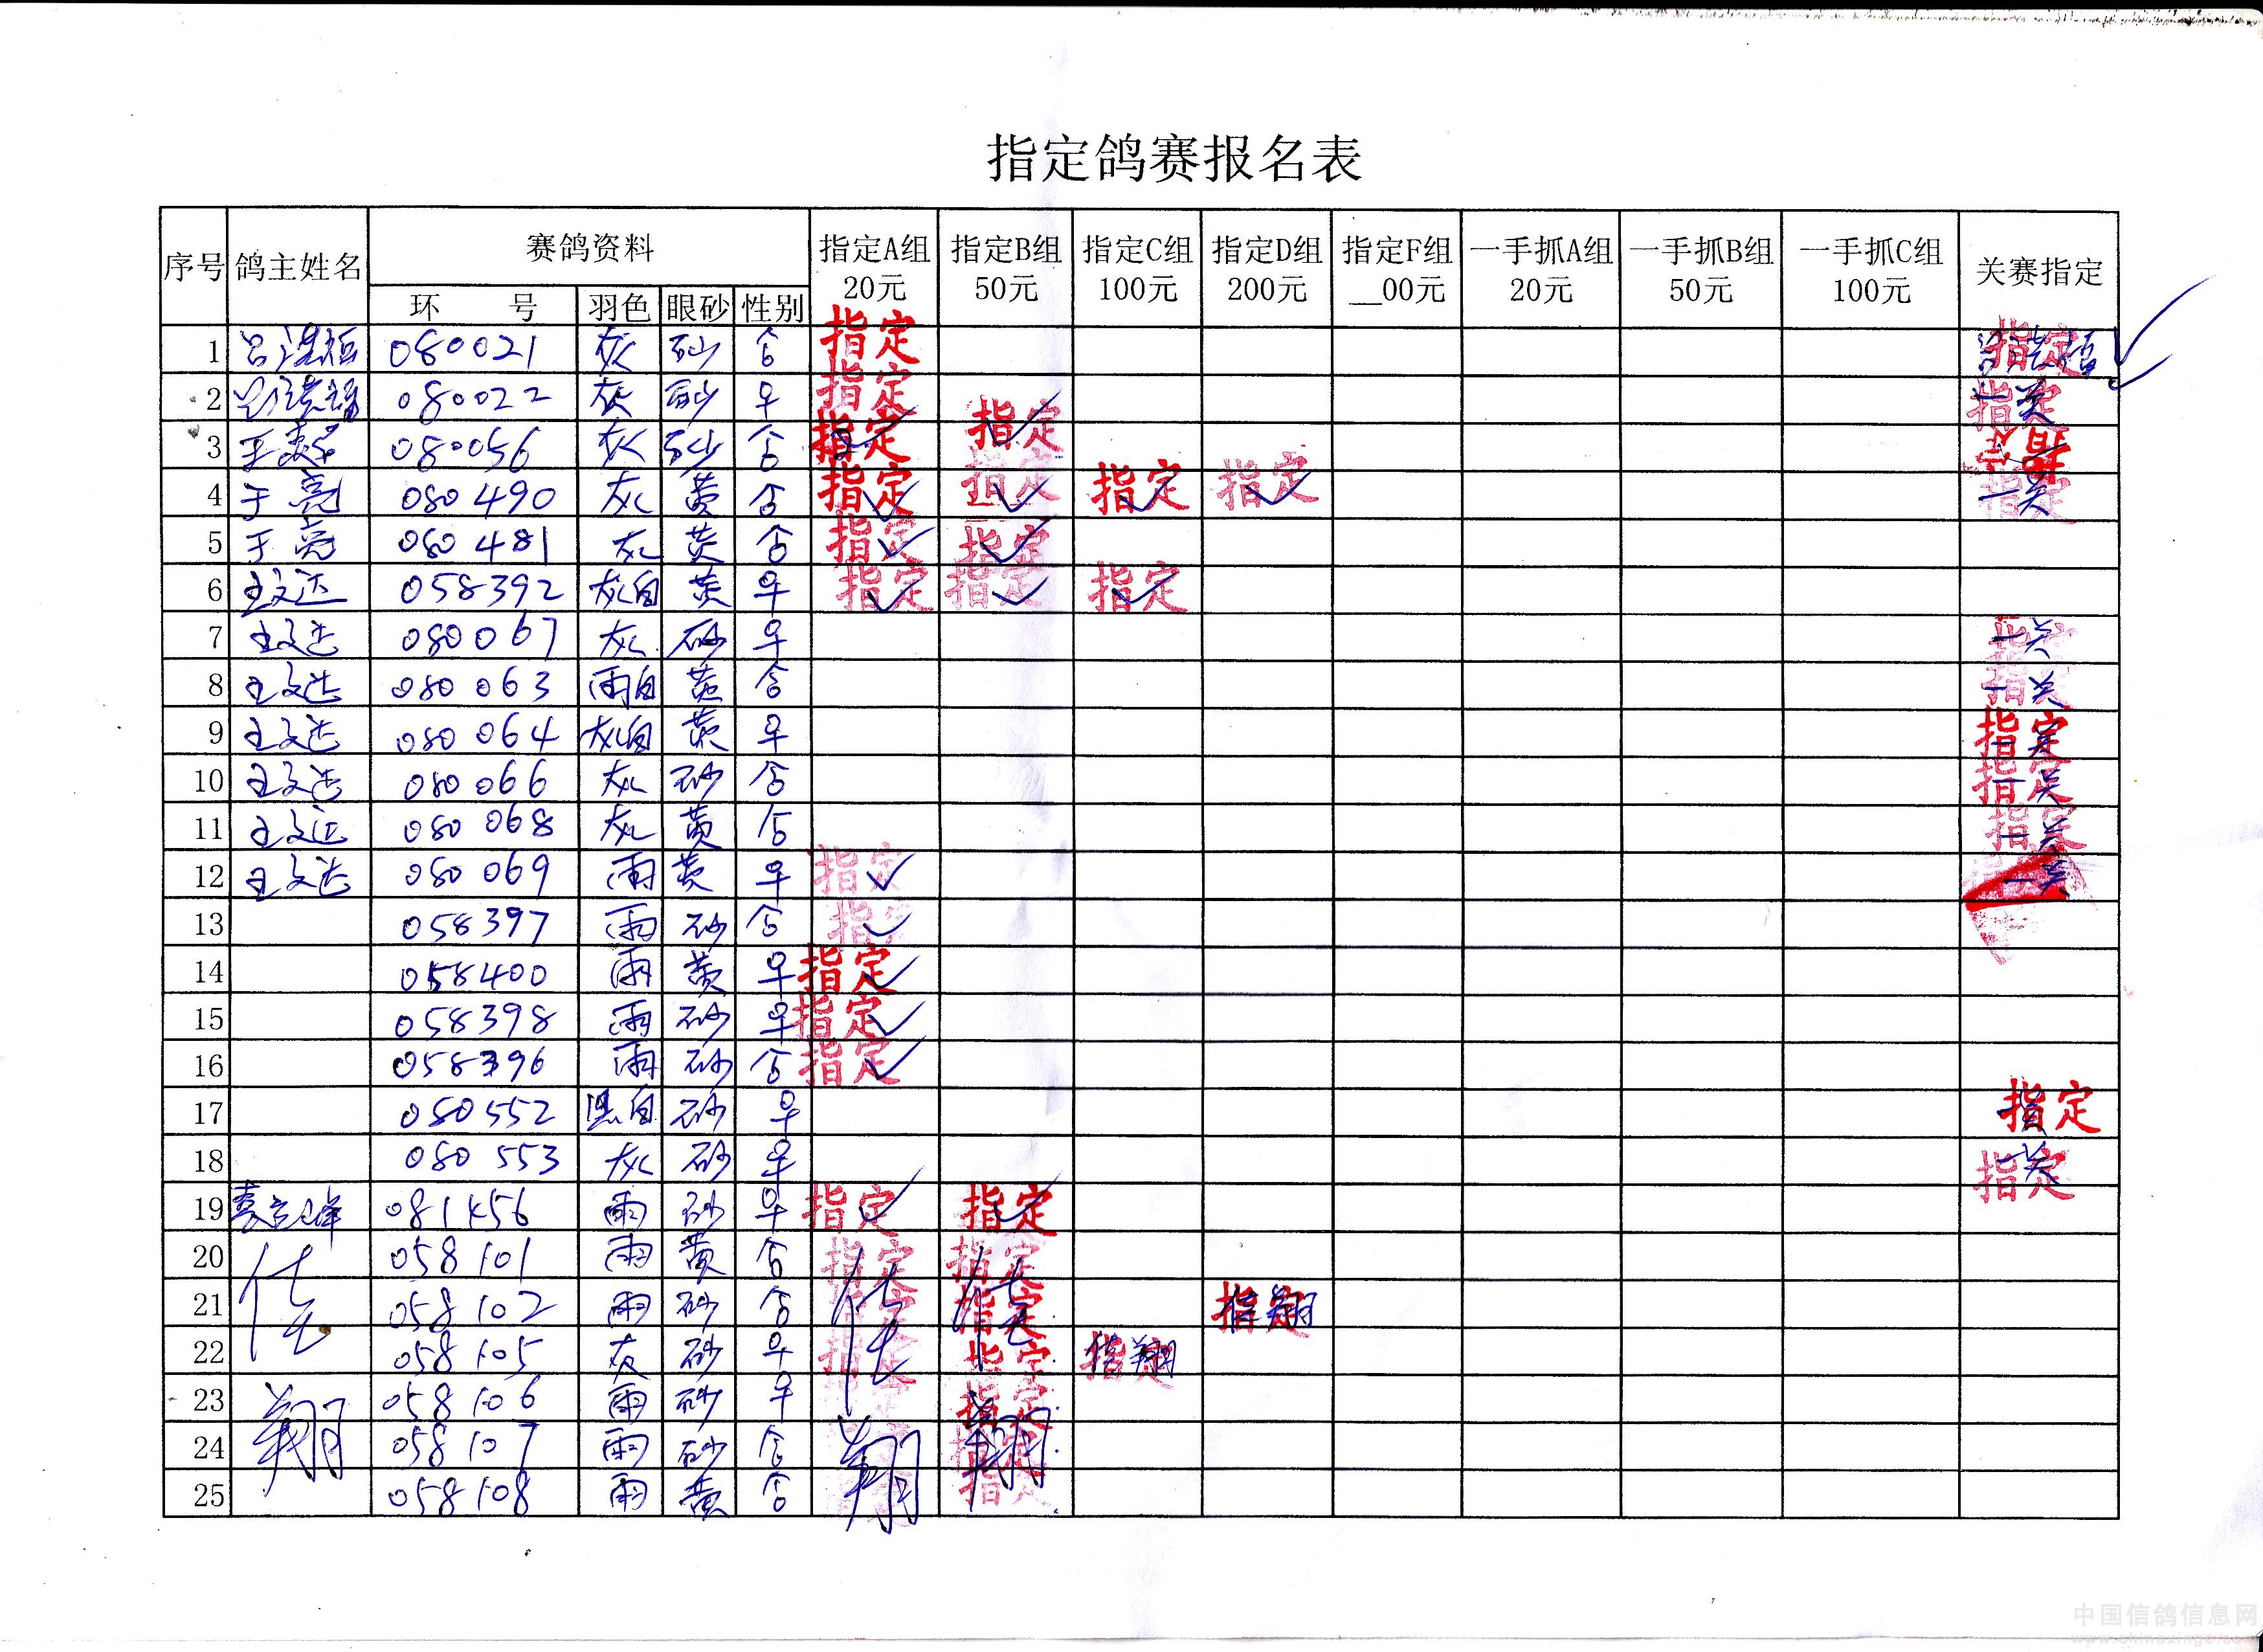 指定鸽赛报名表
序号 鸽主姓名 赛鸽资料 指定A组 20元 指定B组 50元 指定C组 100元 指定D组 200元 指定F组 __00元 一手抓A组 20元 一手抓B组 50元 一手抓C组 100元 关赛指定
环 号 羽色 眼砂 性别
1 080021 灰 砂 合 指定 指定
2 080022 灰 砂 早 指定 指定 一关
3 080056 灰 砂 合 指定 指定
4 于亮 080490 灰 黄 合 指定 指定 指定 指定 指定 一关
5 于亮 080481 灰 黄 合 指定 指定
6 王文达 058392 灰白 黄 早 指定 指定 指定
7 王文达 080067 灰 砂 早 指定 一关
8 王文达 080063 雨白 黄 合 指定 一关
9 王文达 080064 灰白 黄 早 指定 一关
10 王文达 080066 灰 砂 合 指定 一关
11 王文达 080068 灰 黄 合 指定 一关
12 王文达 080069 雨 黄 早 指定 一关
13 058397 雨 砂 合 指定
14 058400 雨 黄 早 指定
15 058398 雨 砂 早 指定
16 058396 雨 砂 合 指定
17 080552 黑白 砂 早 指定
18 080553 灰 砂 早 指定 一关
19 081456 雨 砂 早 指定 指定
20 058101 雨 黄 合 指定 指定
21 任 058102 雨 砂 合 任 指定 任 指定
22 058105 灰 砂 早 指定 指定
23 058106 雨 砂 早 指定
24 翔 058107 雨 砂 合 翔 翔
25 058108 雨 黄 合 指定
中国信鸽信息网